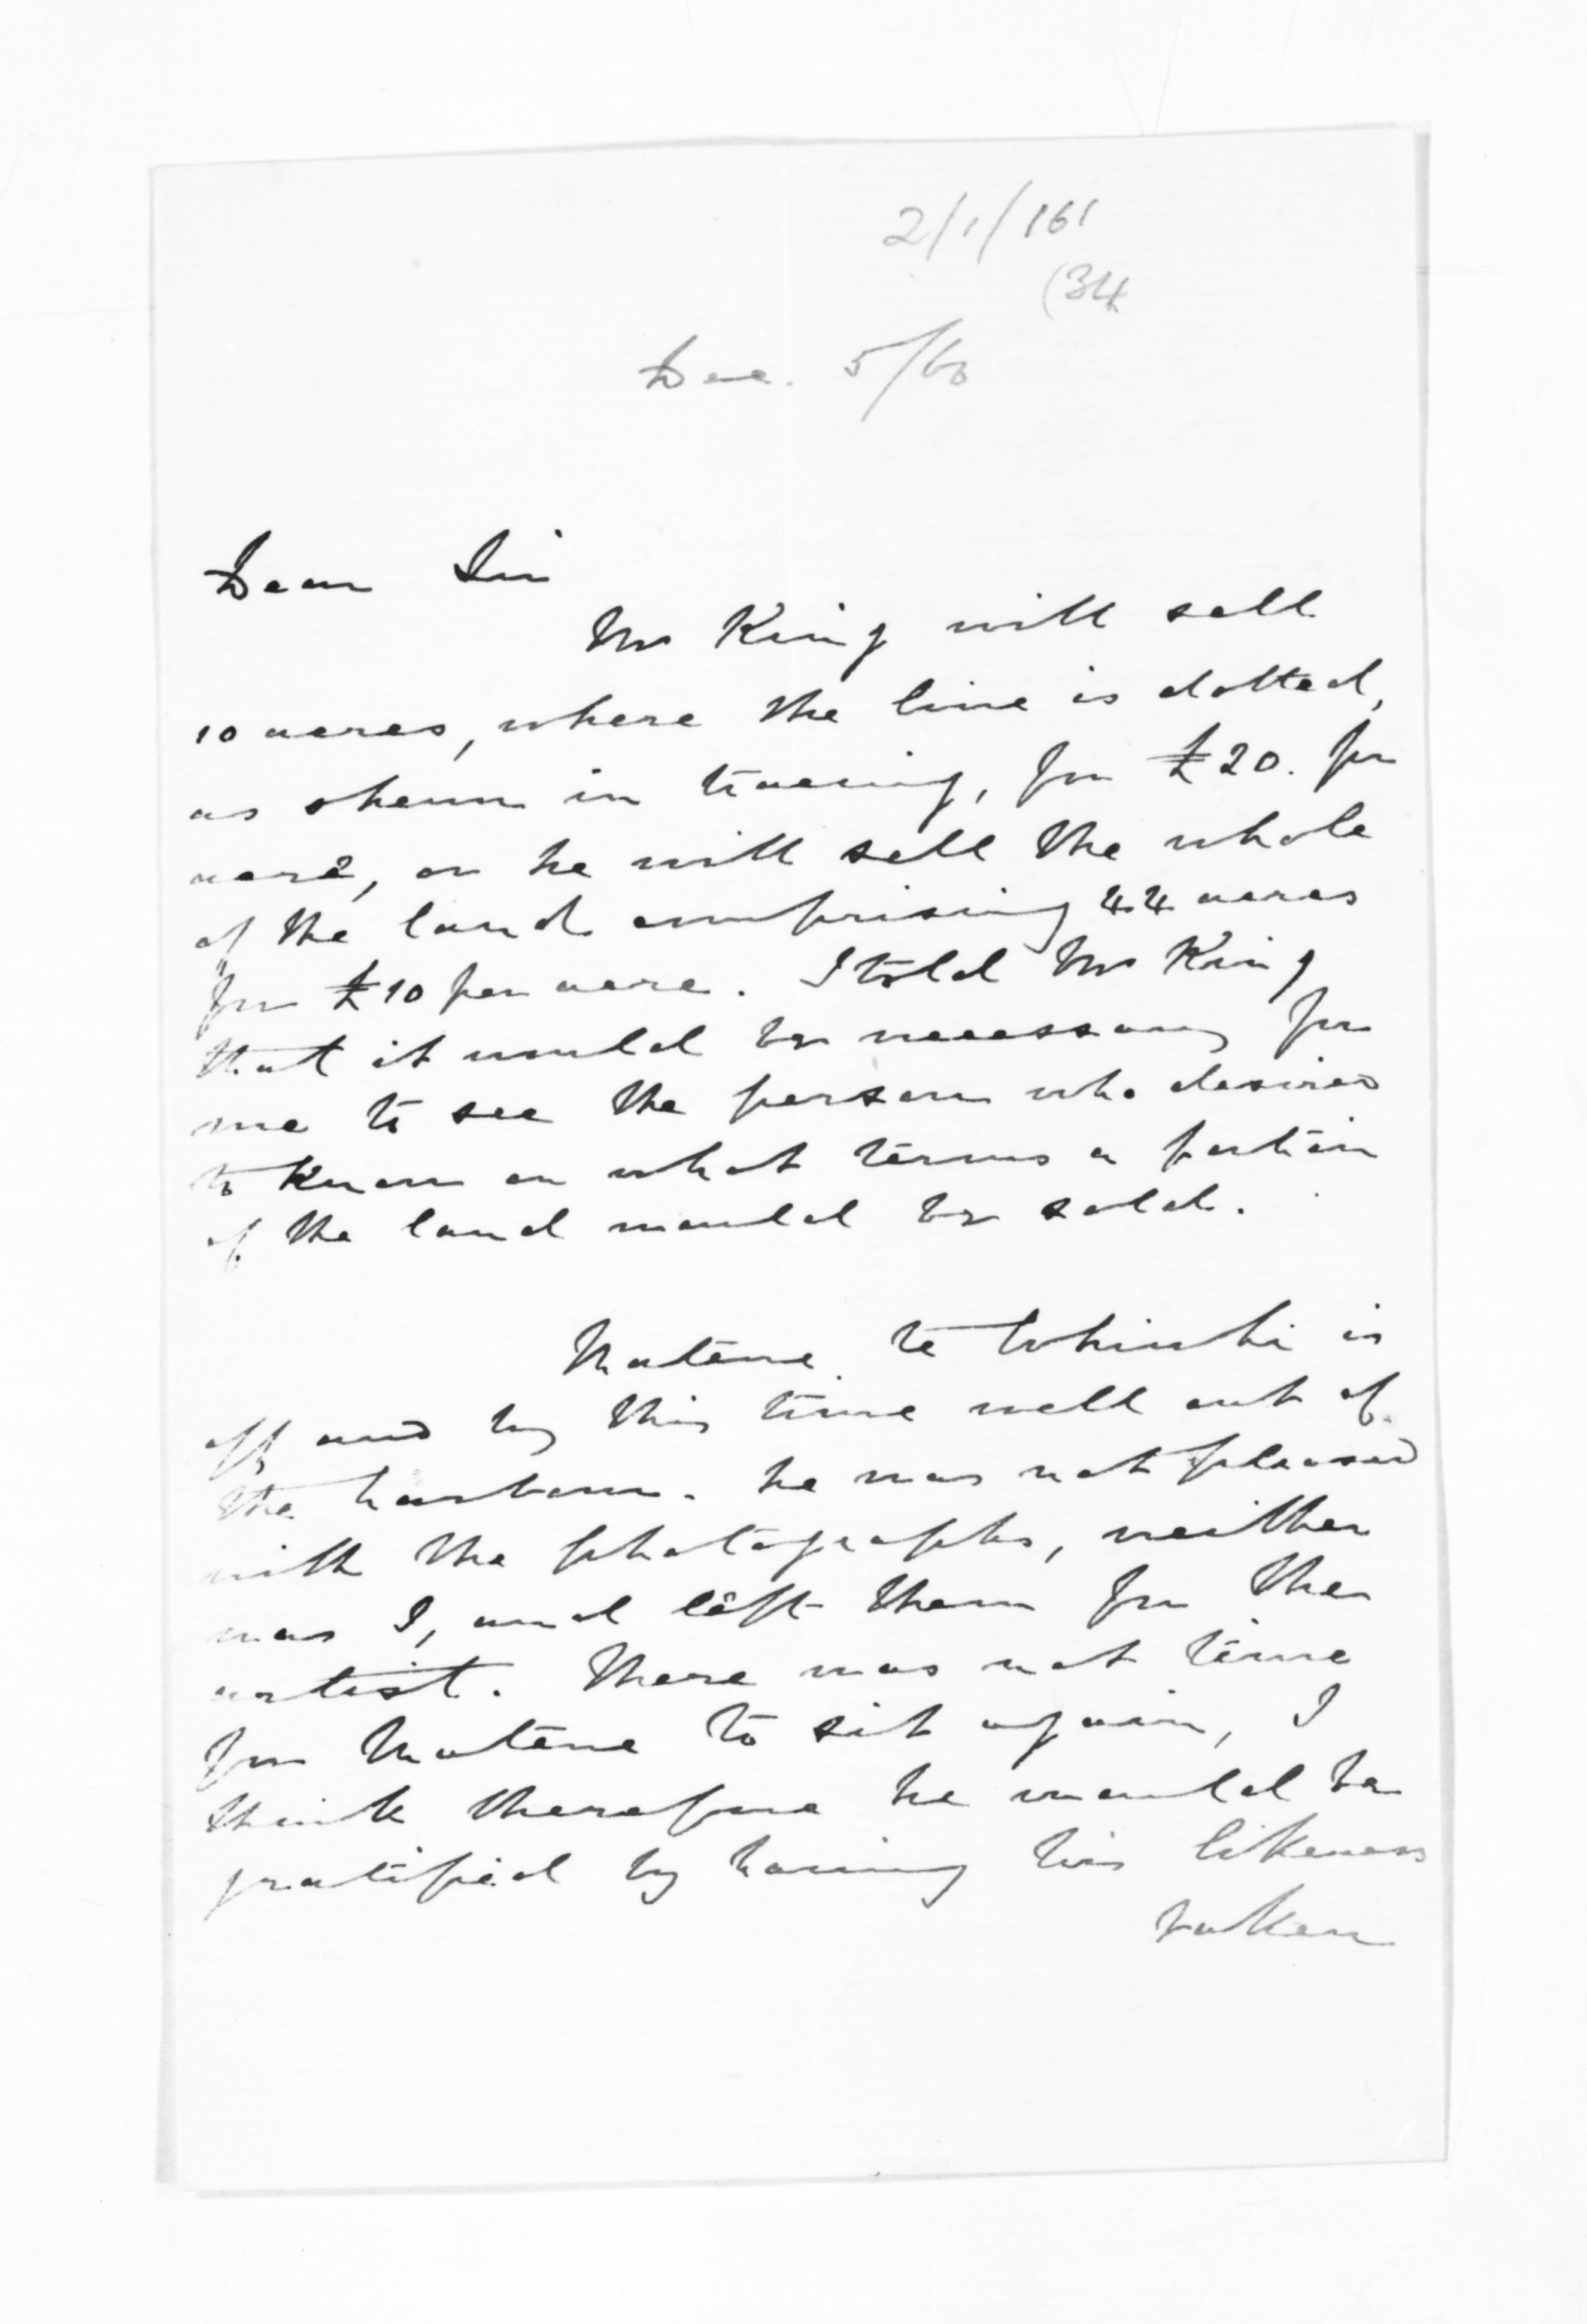 2/1/161
(34
Dec. 5/60
Dear Sir
Mr King will sell
10 acres, where the line is dotted,
as shewn in tracing, for £20. per
acre, or he will sell the whole
of the land comprising 44 acres
for £10 per acre. I told Mr King
that it would be necessary for
me to see the person who desired
to know on what terms a portion
of the land would be sold.
Matene te Whiwhi is
off and by this time well out of
the harbour. he was not pleased
with the photographs, neither
was I, and left them for the
artist. There was not time
for Matene to sit again, I
think therefore he would be
gratified by having his likeness
taken